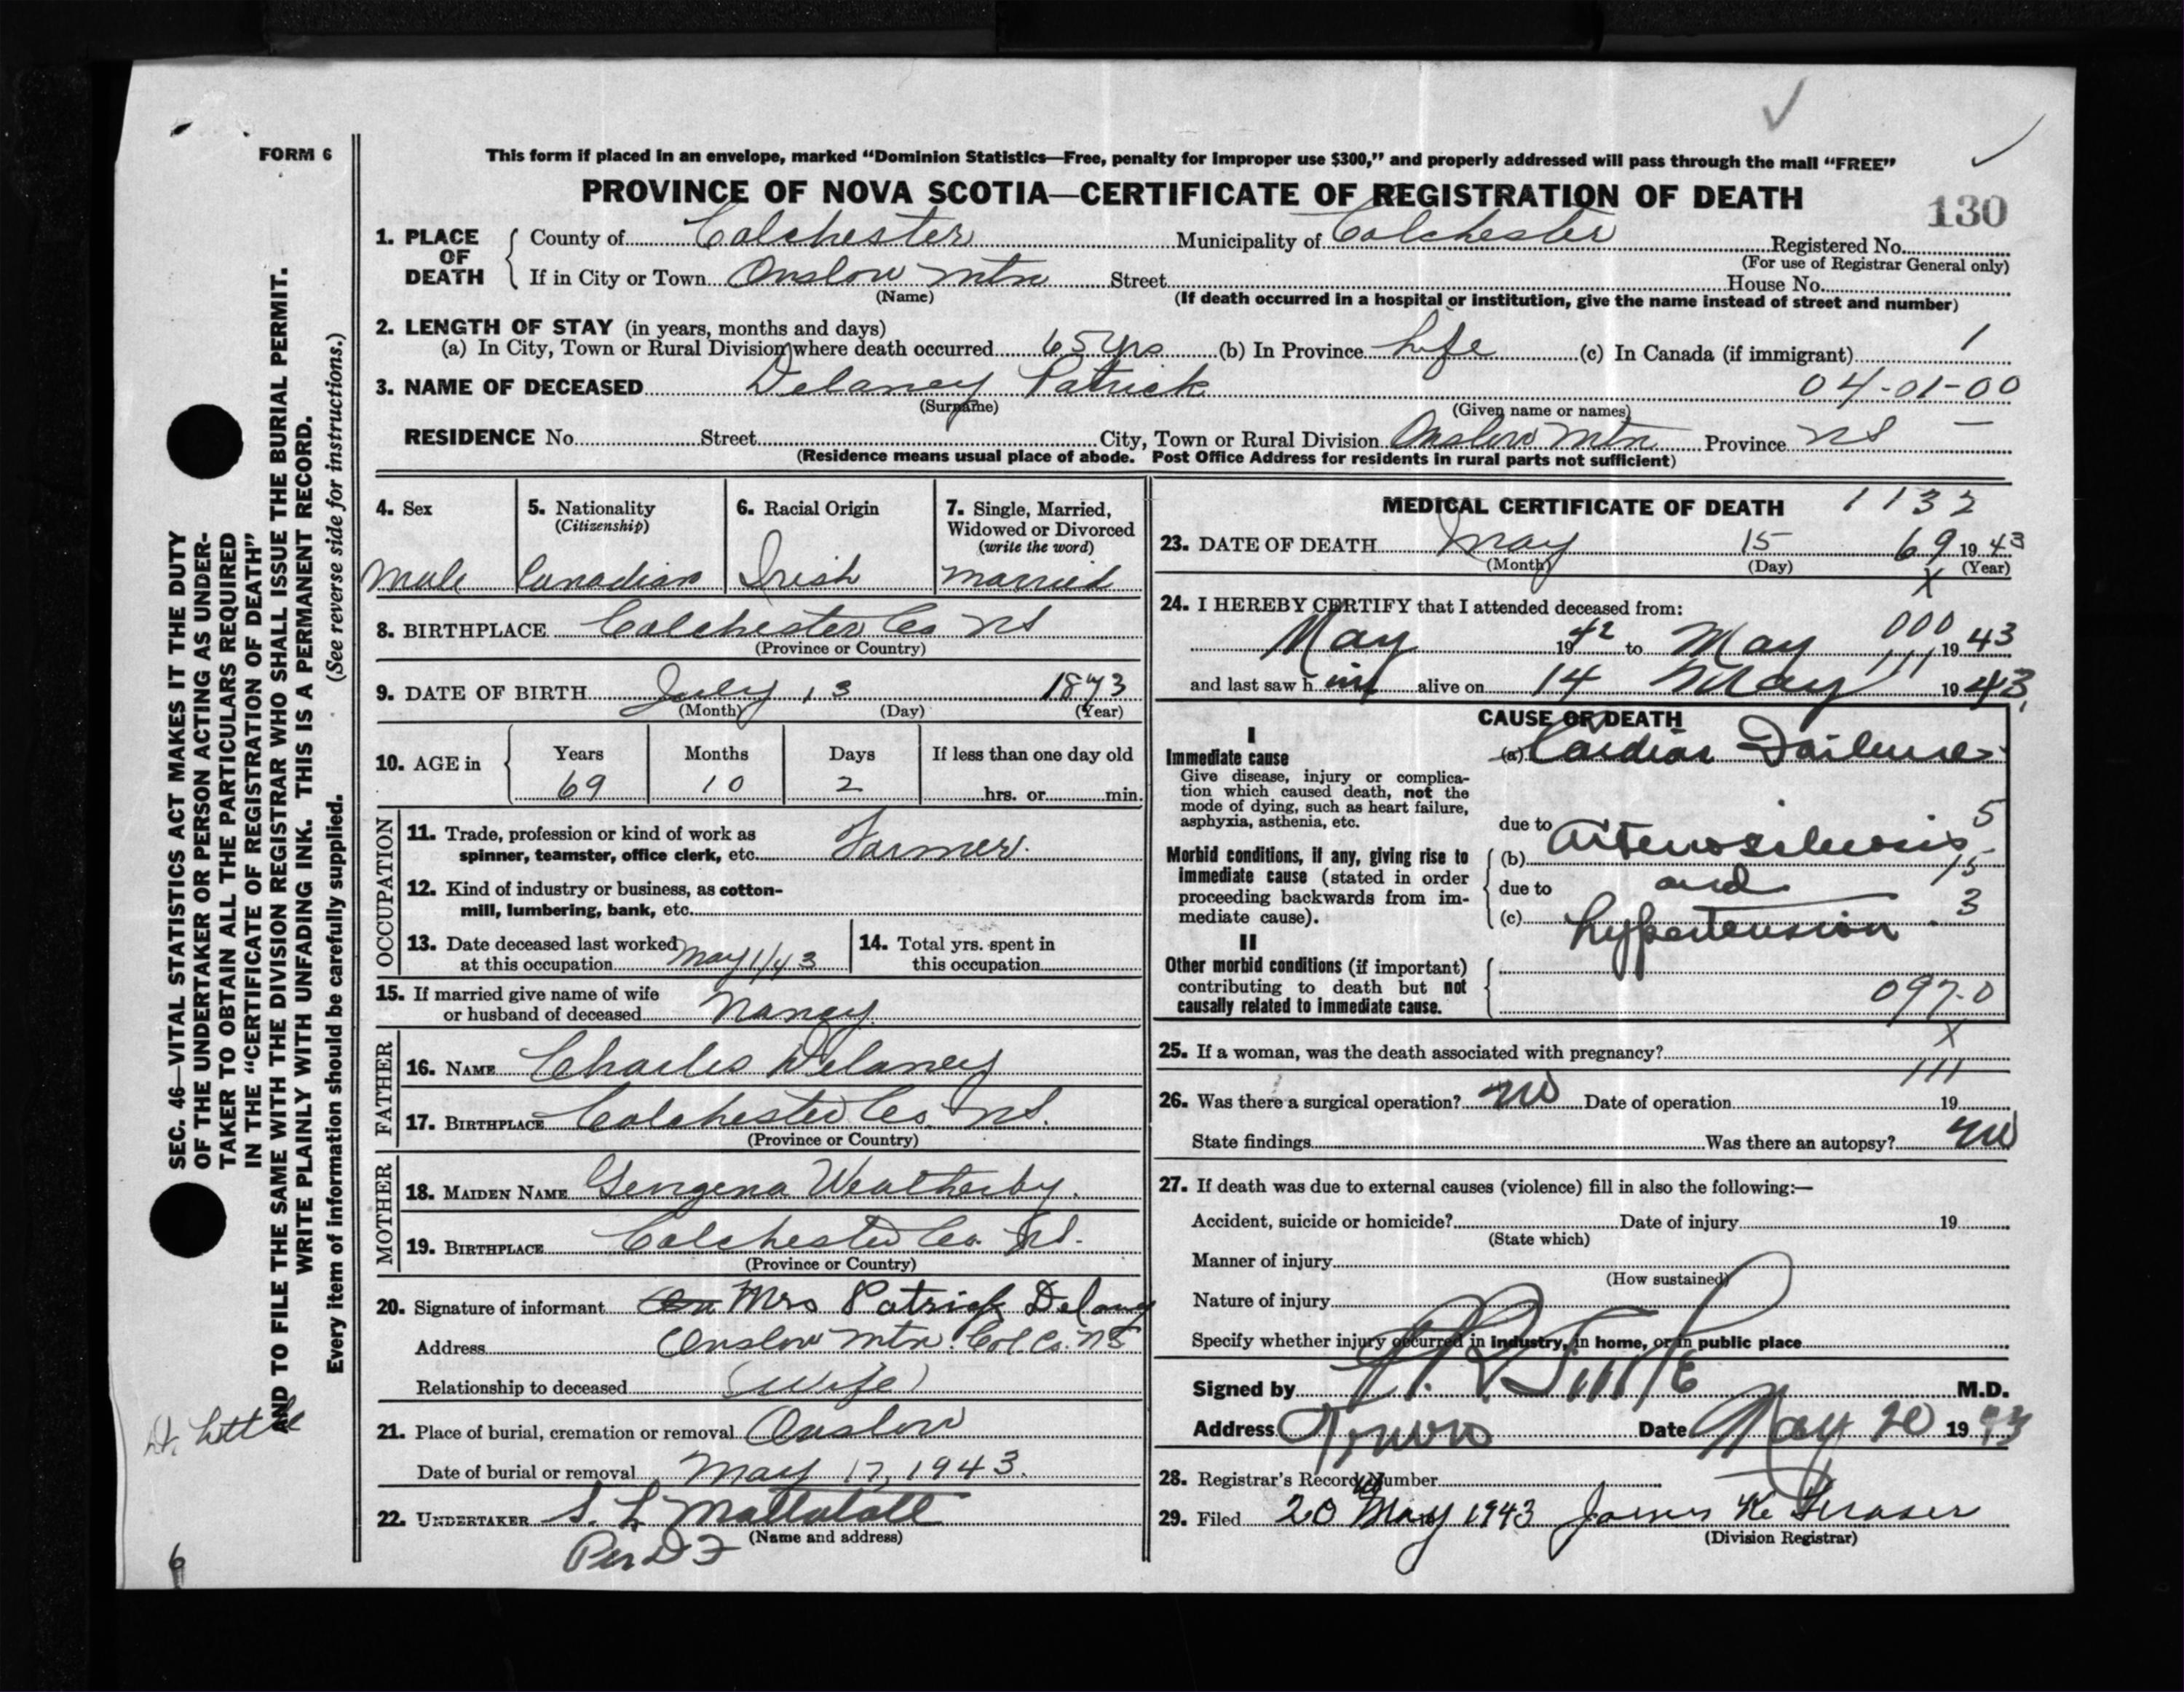 FORM 6
This form if placed in an envelope, marked “Dominion Statistics—Free, penalty for improper use $300,” and properly addressed will pass through the mail “FREE”
PROVINCE OF NOVA SCOTIA—CERTIFICATE OF REGISTRATION OF DEATH
130
1. PLACE OF DEATH
County of Colchester Municipality of Colchester Registered No.
(For use of Registrar General only)
If in City or Town Onslow Mtn Street House No.
(Name) (If death occurred in a hospital or institution, give the name instead of street and number)
2. LENGTH OF STAY (in years, months and days)
(a) In City, Town or Rural Division where death occurred 65 yrs (b) In Province Life (c) In Canada (if immigrant) 1
3. NAME OF DECEASED Delaney Patrick 04-01-00
(Surname) (Given name or names)
RESIDENCE No. Street City, Town or Rural Division Onslow Mtn Province NS —
(Residence means usual place of abode. Post Office Address for residents in rural parts not sufficient)
4. Sex
Male
5. Nationality
(Citizenship)
Canadian
6. Racial Origin
Irish
7. Single, Married,
Widowed or Divorced
(write the word)
Married
8. BIRTHPLACE Colchester Co NS
(Province or Country)
9. DATE OF BIRTH July 13 1873
(Month) (Day) (Year)
10. AGE in Years Months Days If less than one day old
69 10 2 hrs. or min.
OCCUPATION
11. Trade, profession or kind of work as
spinner, teamster, office clerk, etc. Farmer.
12. Kind of industry or business, as cotton-
mill, lumbering, bank, etc.
13. Date deceased last worked
at this occupation May 1/43
14. Total yrs. spent in
this occupation
15. If married give name of wife
or husband of deceased Nancy
FATHER
16. NAME Charles Delaney
17. BIRTHPLACE Colchester Co. NS.
(Province or Country)
MOTHER
18. MAIDEN NAME Gengena Weatherby.
19. BIRTHPLACE Colchester Co. NS.
(Province or Country)
20. Signature of informant Mrs Patrick Delaney
Address Onslow Mtn. Col Co. NS
Relationship to deceased (Wife)
21. Place of burial, cremation or removal Onslow
Date of burial or removal May 17, 1943.
22. UNDERTAKER S. L Mattatall
(Name and address)
Per D F
MEDICAL CERTIFICATE OF DEATH 1132
23. DATE OF DEATH May 15 69 1943
(Month) (Day) (Year)
X
24. I HEREBY CERTIFY that I attended deceased from:
000
May 1942 to May 1943
111
and last saw him alive on 14 May 1943.
CAUSE OF DEATH
I
Immediate cause
Give disease, injury or complica-
tion which caused death, not the
mode of dying, such as heart failure,
asphyxia, asthenia, etc.
(a) Cardiac Failure
due to 5
Morbid conditions, if any, giving rise to
immediate cause (stated in order
proceeding backwards from im-
mediate cause).
(b) Arteriosclerosis 15
due to and
(c) hypertension . 3
II
Other morbid conditions (if important)
contributing to death but not
causally related to immediate cause.
097-0
X
25. If a woman, was the death associated with pregnancy?
111
26. Was there a surgical operation? no Date of operation 19
State findings Was there an autopsy? no
27. If death was due to external causes (violence) fill in also the following:—
Accident, suicide or homicide? Date of injury 19
(State which)
Manner of injury
(How sustained)
Nature of injury
Specify whether injury occurred in industry, in home, or in public place
Signed by M.D.
Address Truro Date May 20 1943
28. Registrar's Record Number
29. Filed 20 May 1943 James K. Fraser
(Division Registrar)
SEC. 46—VITAL STATISTICS ACT MAKES IT THE DUTY
OF THE UNDERTAKER OR PERSON ACTING AS UNDER-
TAKER TO OBTAIN ALL THE PARTICULARS REQUIRED
IN THE “CERTIFICATE OF REGISTRATION OF DEATH”
AND TO FILE THE SAME WITH THE DIVISION REGISTRAR WHO SHALL ISSUE THE BURIAL PERMIT.
WRITE PLAINLY WITH UNFADING INK. THIS IS A PERMANENT RECORD.
Every item of information should be carefully supplied. (See reverse side for instructions.)
Dr. Little
6